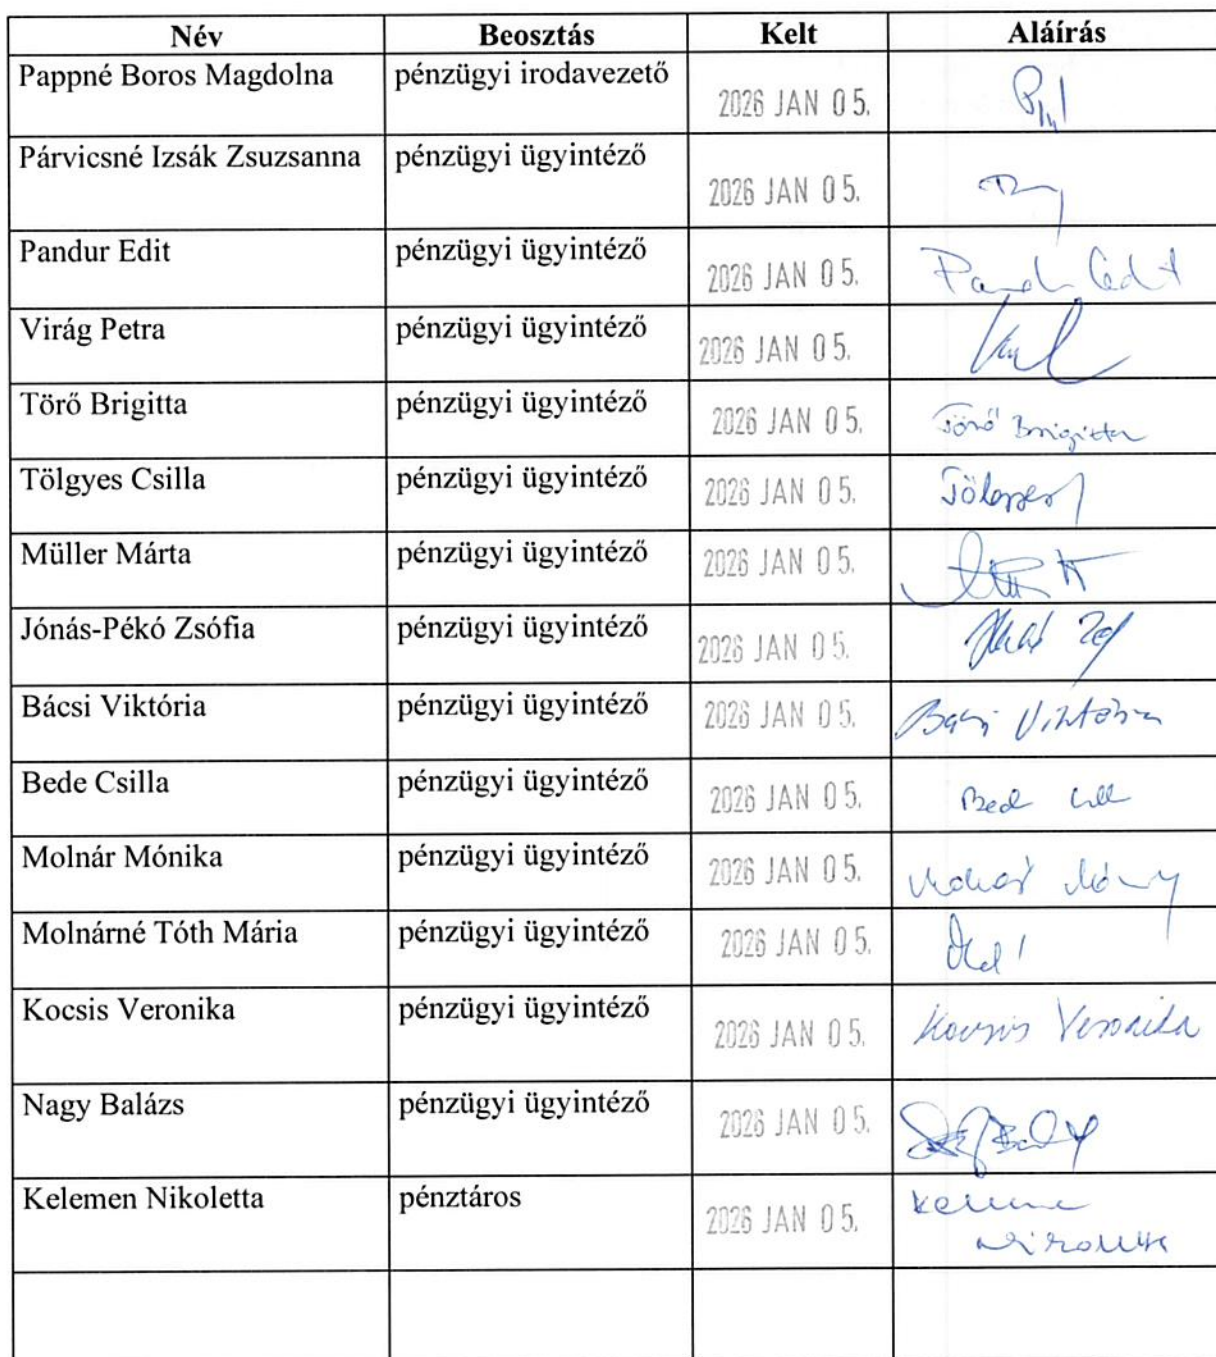 Név Beosztás Kelt Aláírás
Pappné Boros Magdolna pénzügyi irodavezető 2026 JAN 05.
Párvicsné Izsák Zsuzsanna pénzügyi ügyintéző 2026 JAN 05.
Pandur Edit pénzügyi ügyintéző 2026 JAN 05. Pandur Edit
Virág Petra pénzügyi ügyintéző 2026 JAN 05.
Törő Brigitta pénzügyi ügyintéző 2026 JAN 05. Törő Brigitta
Tölgyes Csilla pénzügyi ügyintéző 2026 JAN 05. Tölgyes
Müller Márta pénzügyi ügyintéző 2026 JAN 05.
Jónás-Pékó Zsófia pénzügyi ügyintéző 2026 JAN 05.
Bácsi Viktória pénzügyi ügyintéző 2026 JAN 05. Bácsi Viktória
Bede Csilla pénzügyi ügyintéző 2026 JAN 05.
Molnár Mónika pénzügyi ügyintéző 2026 JAN 05.
Molnárné Tóth Mária pénzügyi ügyintéző 2026 JAN 05.
Kocsis Veronika pénzügyi ügyintéző 2026 JAN 05. Kocsis Veronika
Nagy Balázs pénzügyi ügyintéző 2026 JAN 05.
Kelemen Nikoletta pénztáros 2026 JAN 05. Kelemen
Nikoletta